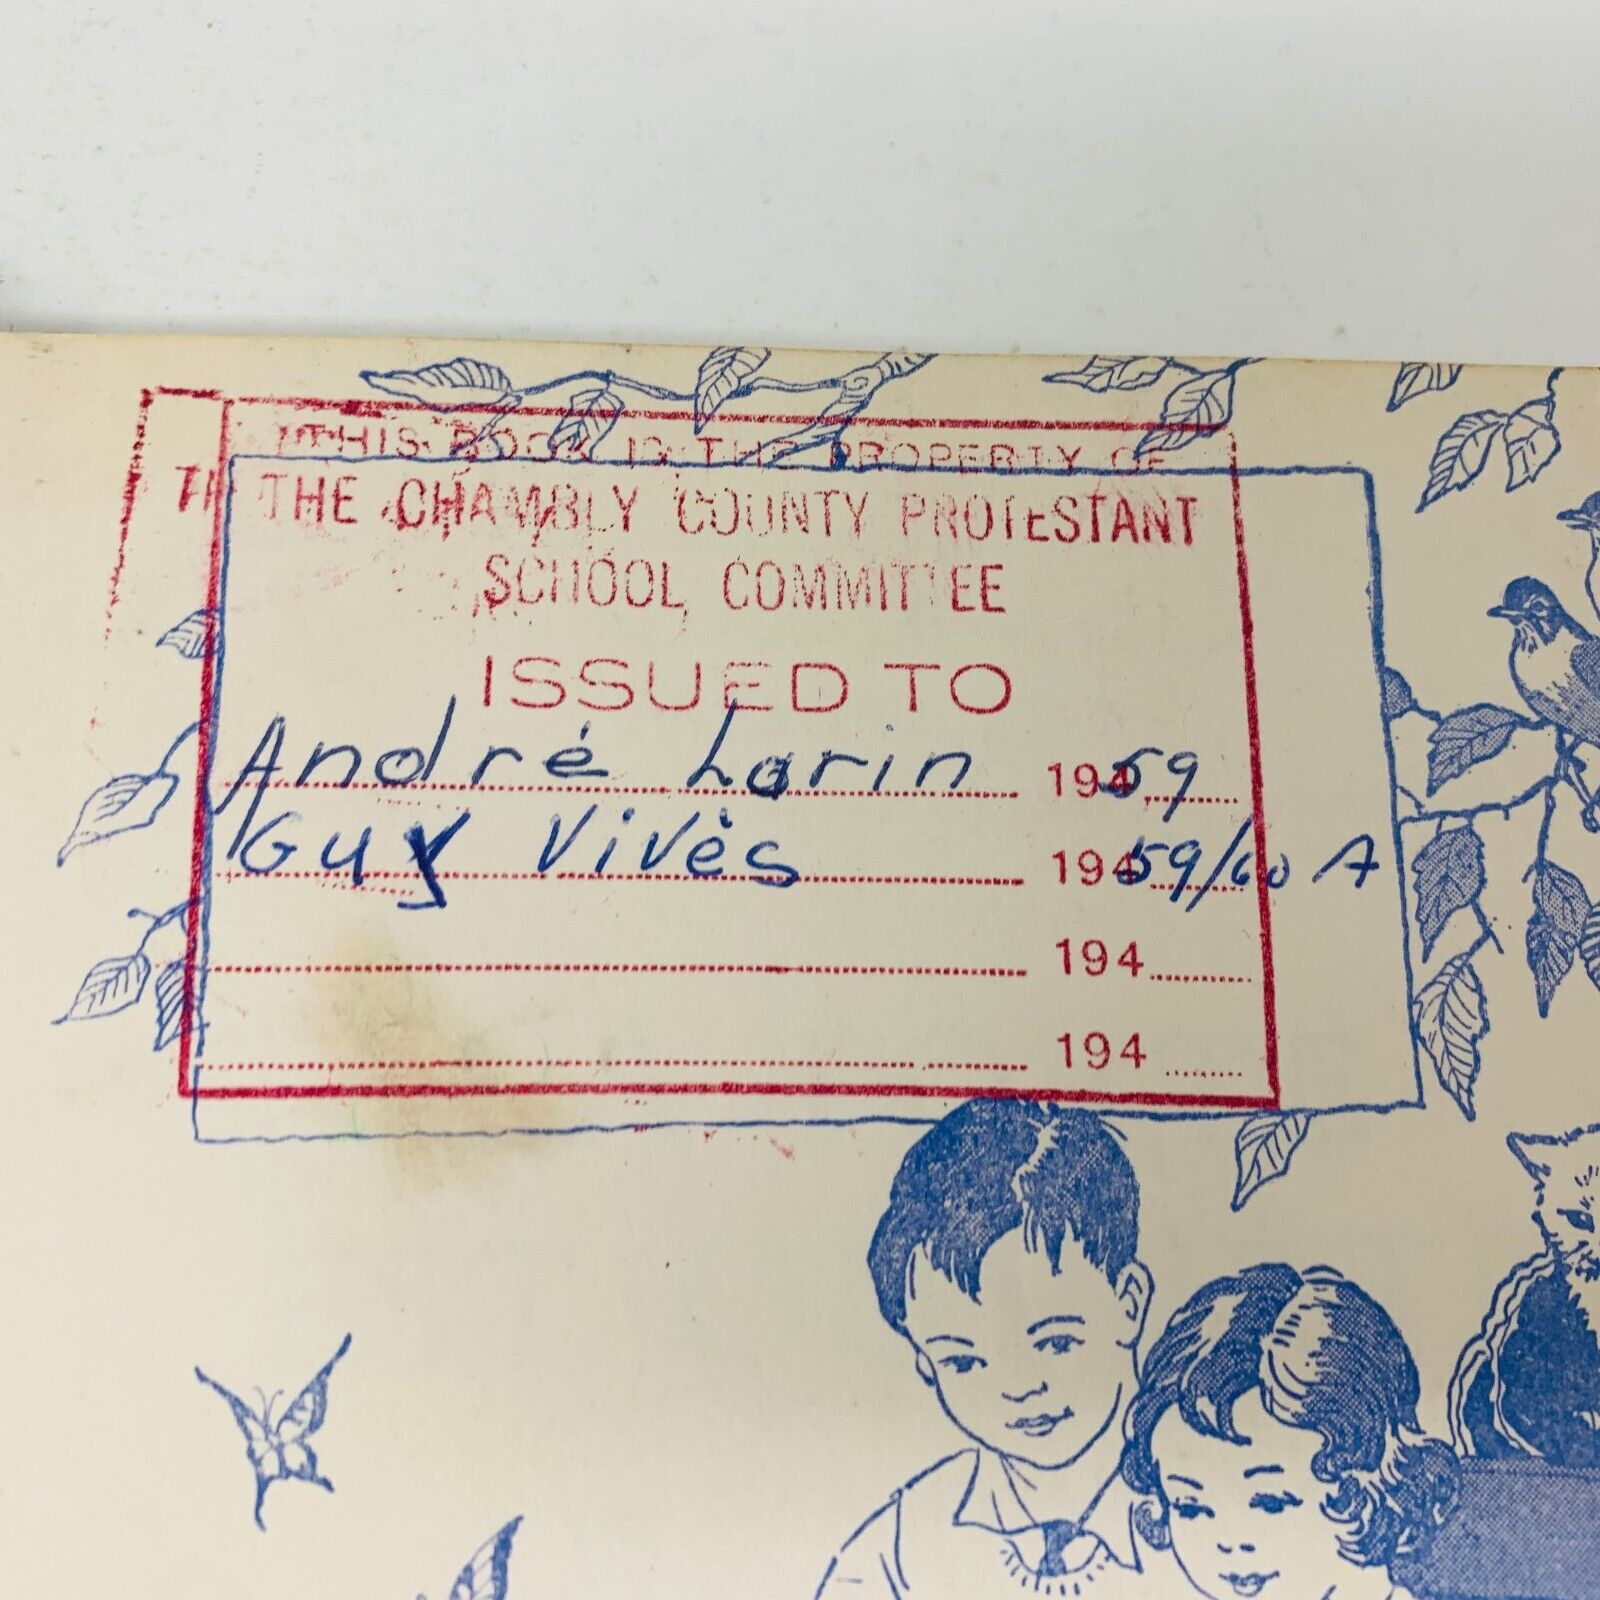 THIS BOOK IS THE PROPERTY OF
THE CHAMBLY COUNTY PROTESTANT
SCHOOL COMMITTEE
ISSUED TO
André Lorin 19459
Guy Vivès 19459/60 A
194
194